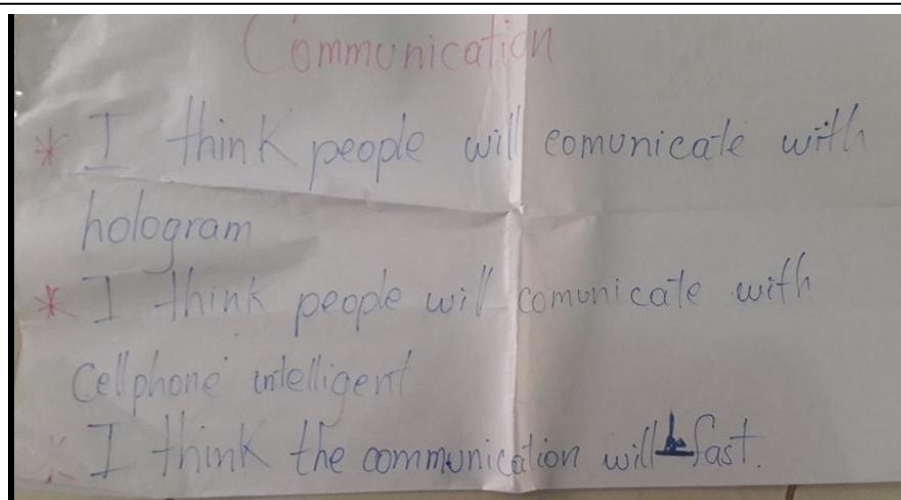 Communication
* I think people will comunicate with
hologram
* I think people will comunicate with
Cellphone intelligent
* I think the communication will fast.